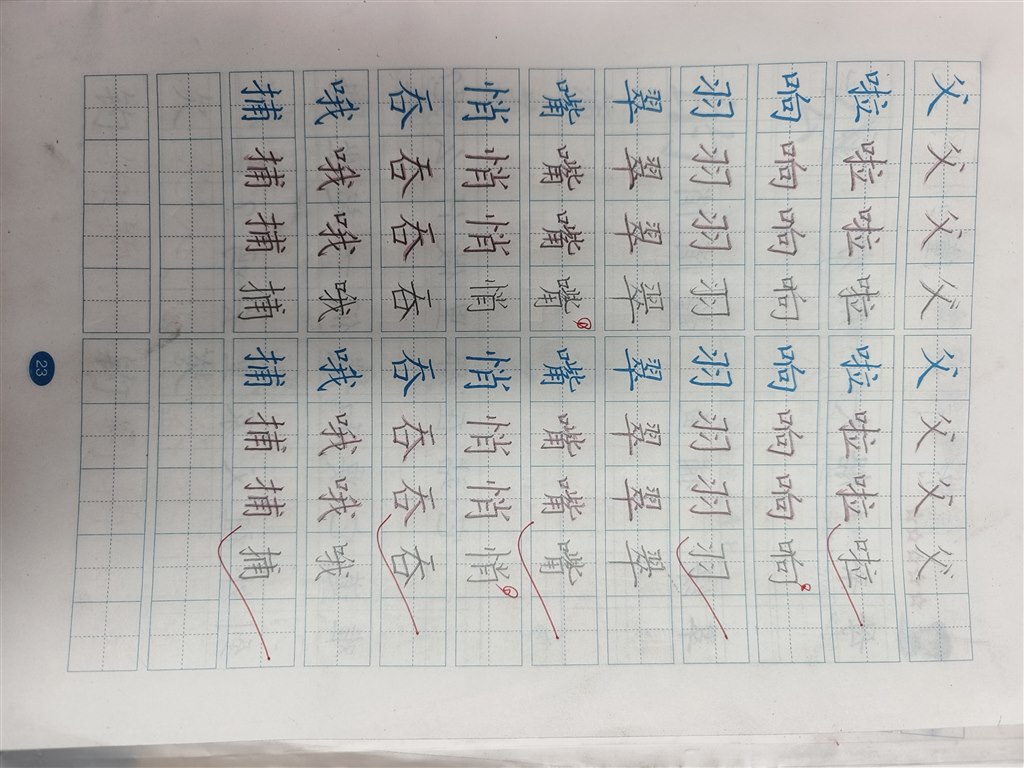 父父父父父父父父
啦啦啦啦啦啦啦啦
响响响响响响响响
羽羽羽羽羽羽羽羽
翠翠翠翠翠翠翠翠
嘴嘴嘴嘴嘴嘴嘴嘴
悄悄悄悄悄悄悄悄
吞吞吞吞吞吞吞吞
哦哦哦哦哦哦哦哦
捕捕捕捕捕捕捕捕
23